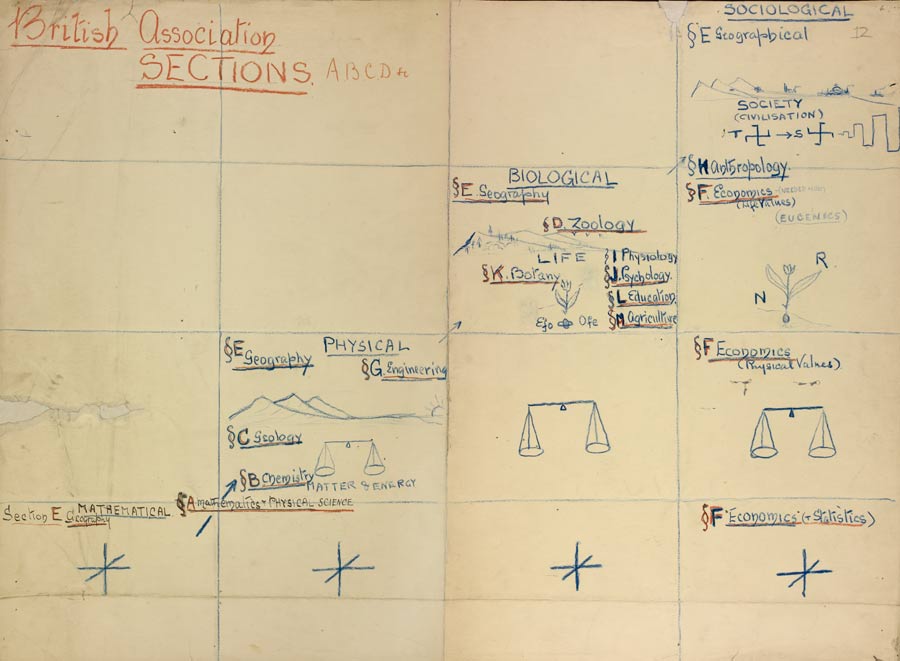 British Association
SECTIONS. A B C D &c
SOCIOLOGICAL
§ E Geographical
12
SOCIETY
(CIVILISATION)
§ H Anthropology.
§ F. Economics
(Life Values)
(EUGENICS)
N
R
BIOLOGICAL
§ E. Geography
§ D. Zoology
LIFE
§ I Physiology
§ J. Psychology.
§ K. Botany
§ L Education
§ M Agriculture
Efo Ofe
PHYSICAL
§ E Geography
§ G. Engineering
§ C Geology
§ B Chemistry
MATTER & ENERGY
§ F Economics
(Physical Values)
MATHEMATICAL
Section E Geography
§ A mathematics + PHYSICAL SCIENCE
§ F Economics (+ Statistics)